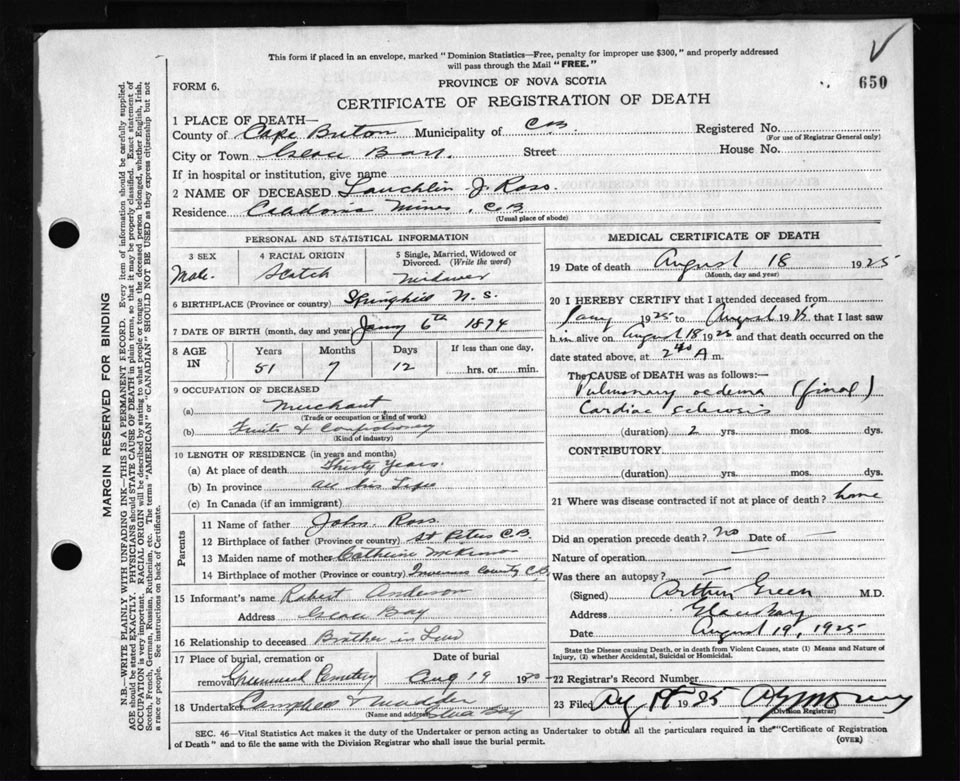 This form if placed in an envelope, marked "Dominion Statistics—Free, penalty for improper use $300," and properly addressed
will pass through the Mail "FREE."
650
FORM 6.
PROVINCE OF NOVA SCOTIA
CERTIFICATE OF REGISTRATION OF DEATH
1 PLACE OF DEATH—
County of Cape Breton Municipality of C.B. Registered No.
(For use of Registrar General only)
City or Town Glace Bay. Street House No.
If in hospital or institution, give name
2 NAME OF DECEASED Lauchlin J. Ross.
Residence Caledonia Mines, C.B.
(Usual place of abode)
PERSONAL AND STATISTICAL INFORMATION
3 SEX 4 RACIAL ORIGIN 5 Single, Married, Widowed or
Divorced. (Write the word)
Male. Scotch Widower
6 BIRTHPLACE (Province or country) Springhill N.S.
7 DATE OF BIRTH (month, day and year) Jany 6th 1874
8 AGE IN Years Months Days If less than one day,
51 7 12 hrs. or min.
9 OCCUPATION OF DECEASED
(a) Merchant
(Trade or occupation or kind of work)
(b) Fruits & Confectionery
(Kind of industry)
10 LENGTH OF RESIDENCE (in years and months)
(a) At place of death Thirty Years.
(b) In province All his Life
(c) In Canada (if an immigrant)
Parents
11 Name of father John Ross.
12 Birthplace of father St Peters C.B.
13 Maiden name of mother Catherine McKinnon
14 Birthplace of mother (Province or country) Inverness County C.B.
15 Informant's name Robert Anderson
Address Glace Bay
16 Relationship to deceased Brother in Law
17 Place of burial, cremation or Date of burial
removal Greenwood Cemetery Aug 19 19
18 Undertaker Campbell &
(Name and address) Glace Bay
MEDICAL CERTIFICATE OF DEATH
19 Date of death August 18 1925
(Month, day and year)
20 I HEREBY CERTIFY that I attended deceased from
Jany 1925 to August 1925 that I last saw
him alive on August 18 1925 and that death occurred on the
date stated above, at A m.
The CAUSE of DEATH was as follows:—
Pulmonary oedema (final)
Cardiac sclerosis
(duration) 2 yrs. mos. dys.
CONTRIBUTORY
(duration) yrs. mos. dys.
21 Where was disease contracted if not at place of death? home
Did an operation precede death? no Date of —
Nature of operation —
Was there an autopsy? —
(Signed) Arthur Green M.D.
Address Glace Bay
Date August 19, 1925
State the Disease causing Death, or in death from Violent Causes, state (1) Means and Nature of
Injury, (2) whether Accidental, Suicidal or Homicidal.
22 Registrar's Record Number
23 Filed Aug 19 1925
(Division Registrar)
SEC. 46—Vital Statistics Act makes it the duty of the Undertaker or person acting as Undertaker to obtain all the particulars required in the "Certificate of Registration
of Death" and to file the same with the Division Registrar who shall issue the burial permit. (OVER)
MARGIN RESERVED FOR BINDING
N.B.—WRITE PLAINLY WITH UNFADING INK—THIS IS A PERMANENT RECORD. Every item of information should be carefully supplied.
AGE should be stated EXACTLY. PHYSICIANS should STATE CAUSE OF DEATH in plain terms, so that it may be properly classified. Exact statement of
OCCUPATION is very important. RACIAL ORIGIN will be described by stating to what people or tongue the deceased person belonged, whether English, Irish,
Scotch, French, German, Russian, Ruthenian, etc. The terms "AMERICAN" or "CANADIAN" SHOULD NOT BE USED as they express citizenship but not
a race or people. See instructions on back of Certificate.